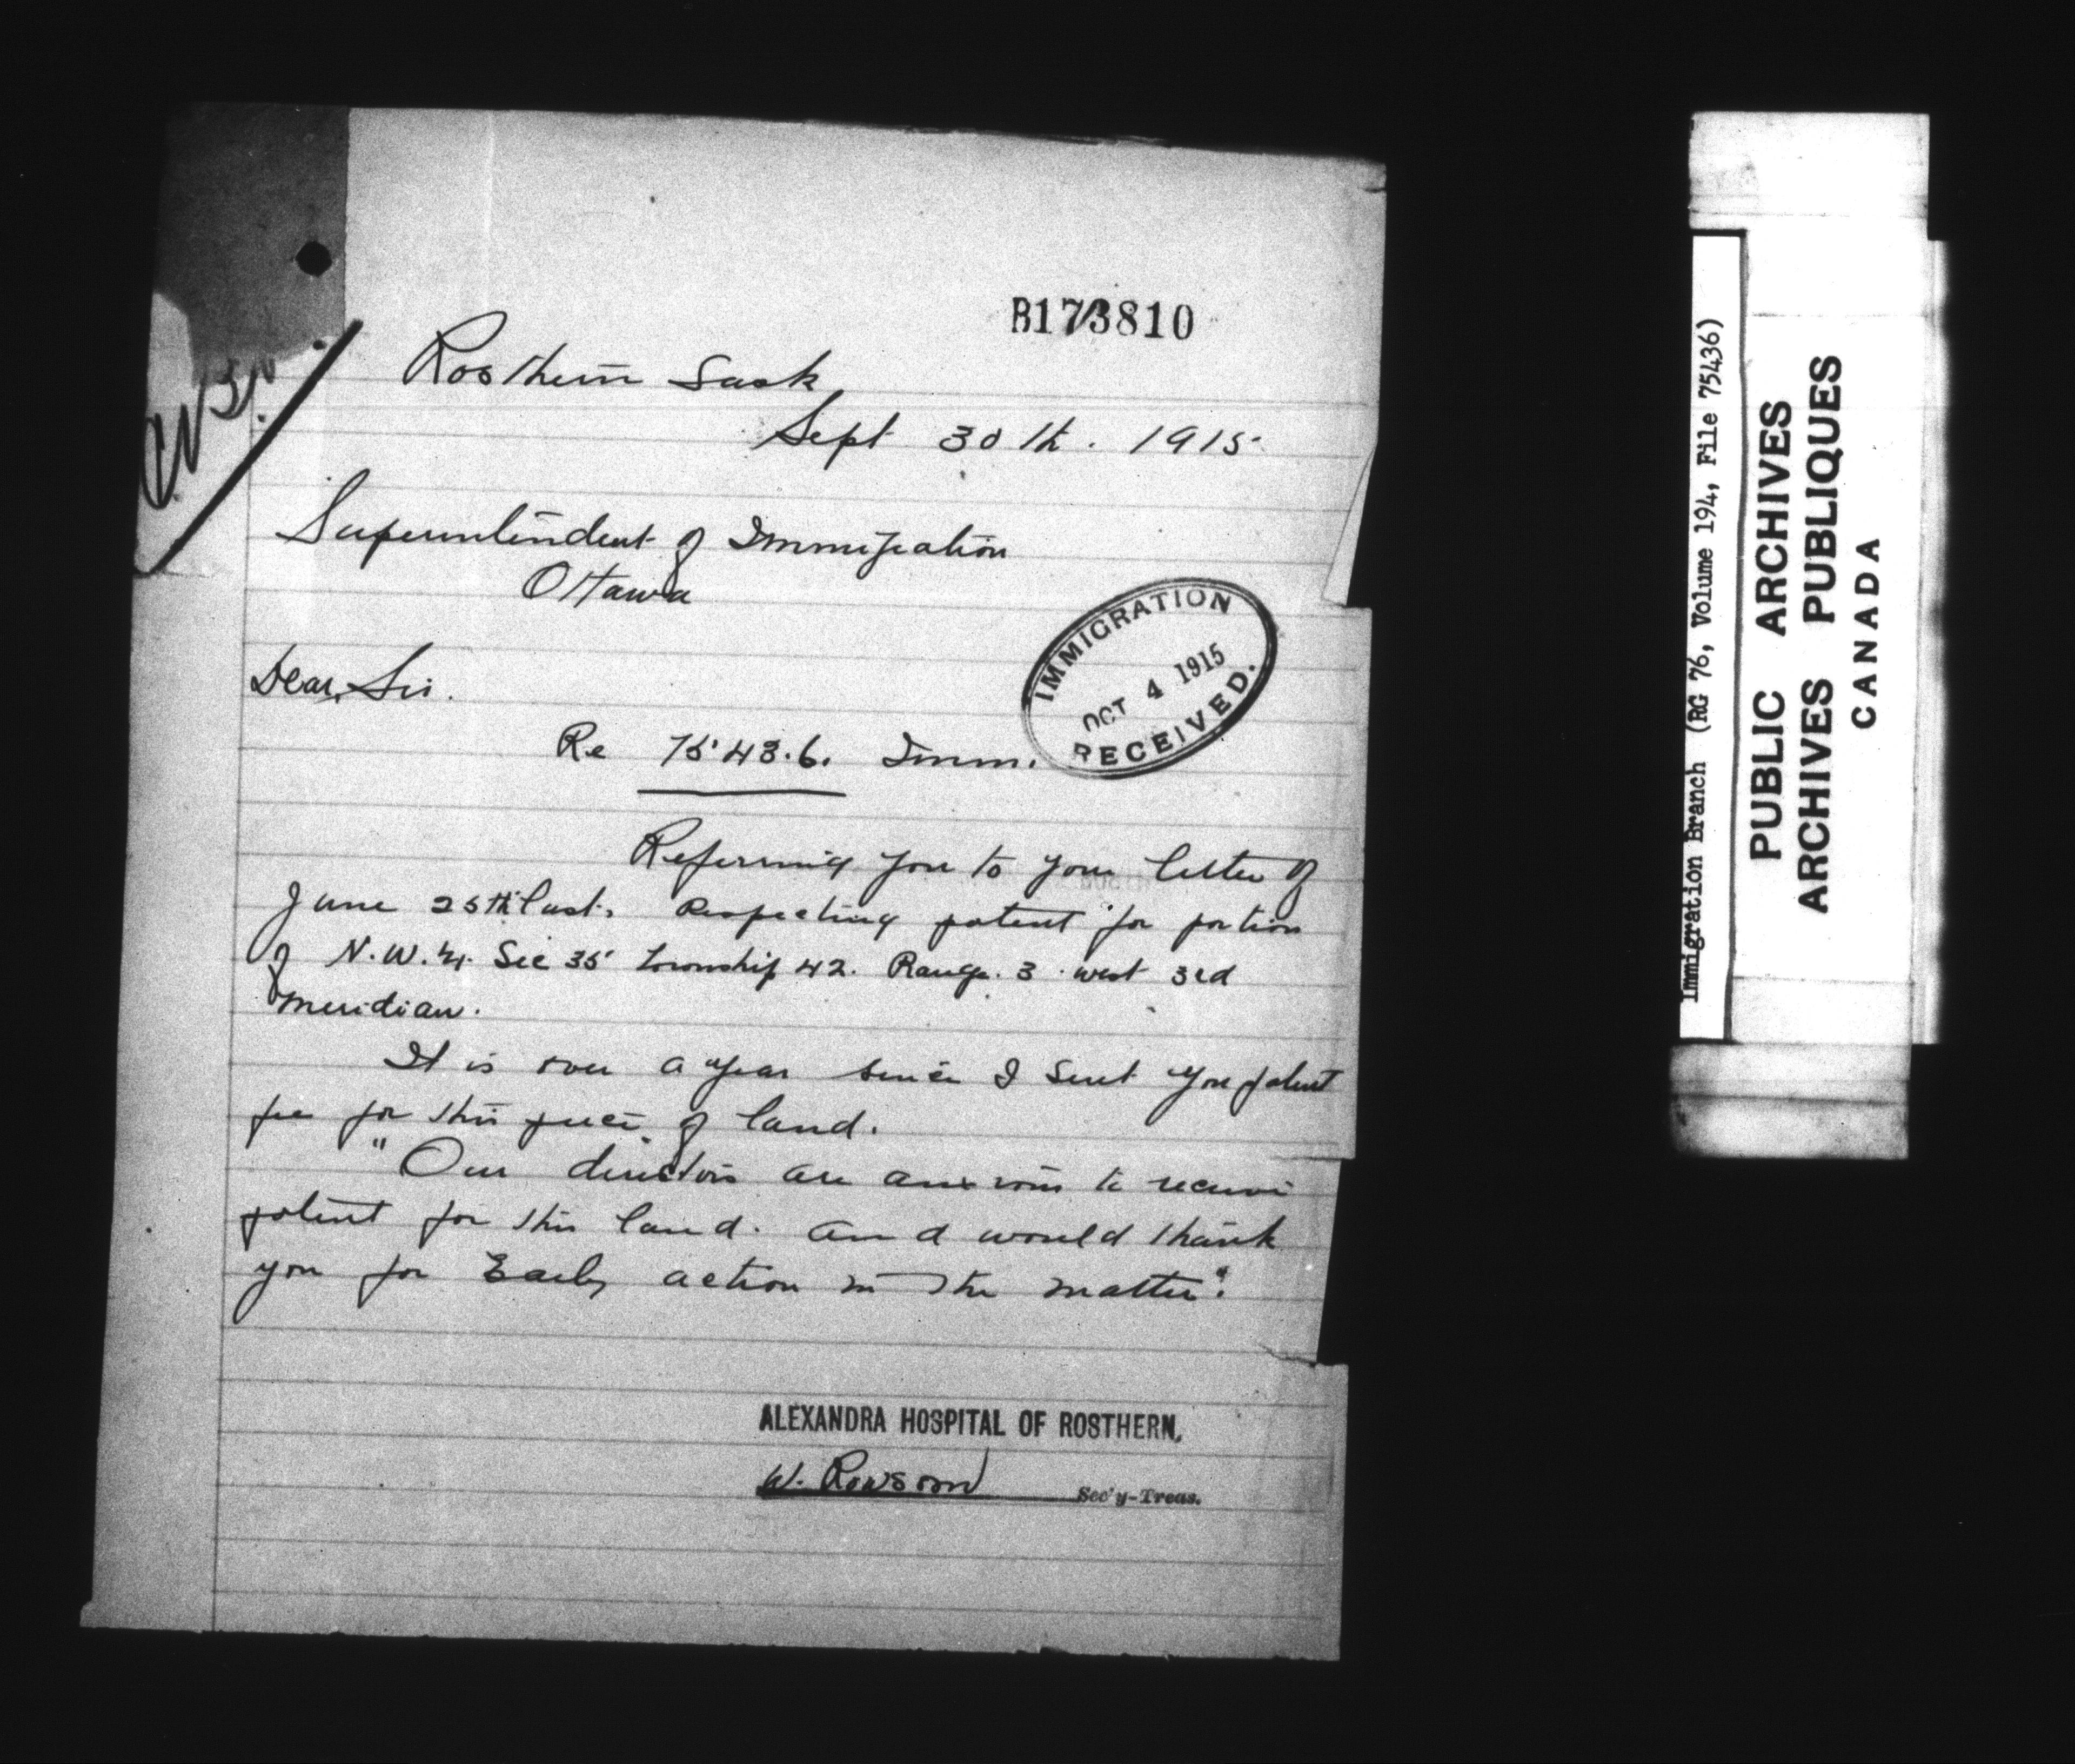 B173810
Rosthern Sask
Sept 30th. 1915
Superintendent of Immigration
Ottawa
IMMIGRATION
OCT 4 1915
RECEIVED.
Dear Sir.
Re 75436. Imm.
Referring you to your letter of
June 25th last. Respecting patent for portion
of N.W.¼. Sec 35 Township 42. Range. 3 west 3rd
Meridian.
It is over a year since I sent you patent
fee for this piece of land.
"Our directors are anxious to receive
patent for this land. and would thank
you for Early action in the matter".
ALEXANDRA HOSPITAL OF ROSTHERN,
W. Rowson
Sec'y-Treas.
Immigration Branch (RG 76, Volume 194, File 75436)
PUBLIC ARCHIVES
ARCHIVES PUBLIQUES
CANADA